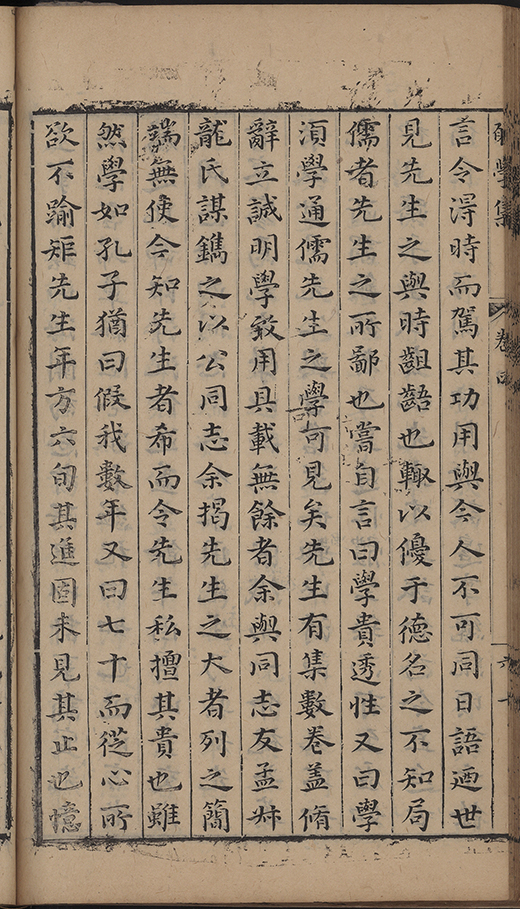 學集
卷四
言令得時而駕其功用與今人不可同日語迺世
見先生之與時齟齬也輒以優于德名之不知局
儒者先生之所鄙也嘗自言曰學貴透性又曰學
湏學通儒先生之學可見矣先生有集數卷盖脩
辭立誠明學致用具載無餘者余與同志友孟

龍氏謀鐫之以公同志余揭先生之大者列之簡
端無使今知先生者希而令先生私擅其貴也雖
然學如孔子猶曰假我數年又曰七十而從心所
欲不踰矩先生年方六旬其進固未見其止也憶